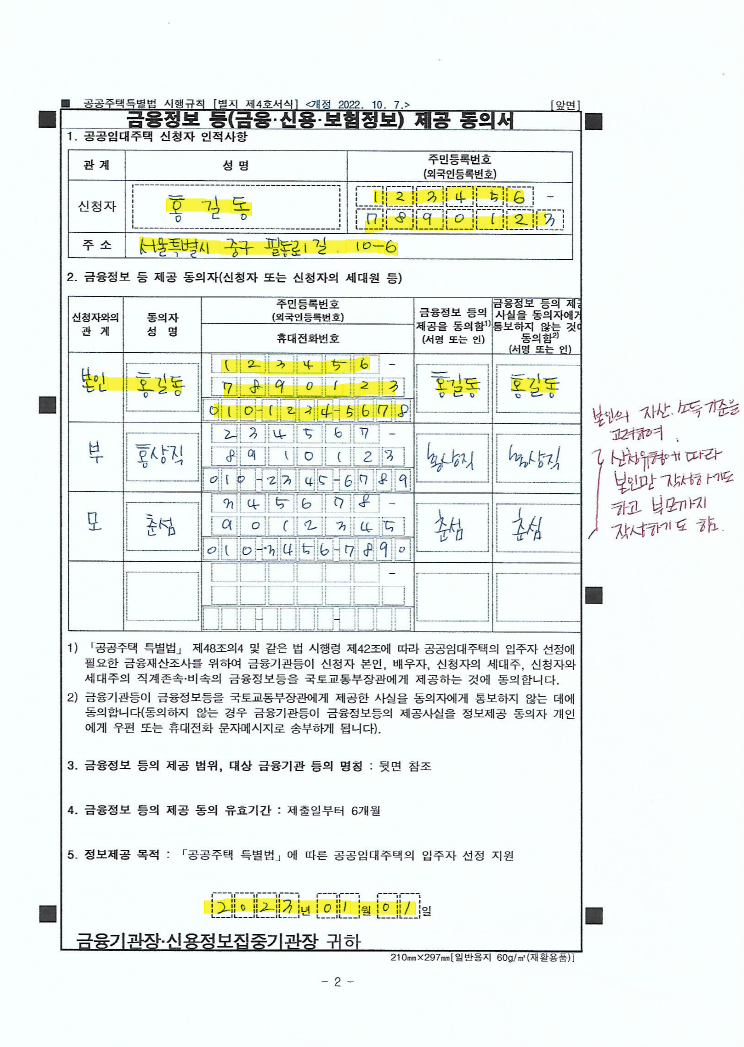 ■ 공공주택특별법 시행규칙 [별지 제4호서식] <개정 2022. 10. 7.> [앞면]
금융정보 등(금융·신용·보험정보) 제공 동의서
1. 공공임대주택 신청자 인적사항
관 계 성 명 주민등록번호
(외국인등록번호)
신청자 홍 길 동 1 2 3 4 5 6 -
7 8 9 0 1 2 3
주 소 서울특별시 중구 필동로1길 10-6
2. 금융정보 등 제공 동의자(신청자 또는 신청자의 세대원 등)
신청자와의
관 계
동의자
성 명
주민등록번호
(외국인등록번호)
휴대전화번호
금융정보 등의
제공을 동의함1)
(서명 또는 인)
금융정보 등의 제공
사실을 동의자에게
통보하지 않는 것에
동의함2)
(서명 또는 인)
본인 홍길동 1 2 3 4 5 6 - 홍길동 홍길동
7 8 9 0 1 2 3
0 1 0 - 1 2 3 4 - 5 6 7 8
부 홍상직 2 3 4 5 6 7 - 홍상직 홍상직
8 9 1 0 1 2 3
0 1 0 - 2 3 4 5 - 6 7 8 9
모 춘섬 3 4 5 6 7 8 - 춘섬 춘섬
9 0 1 2 3 4 5
0 1 0 - 3 4 5 6 - 7 8 9 0
-
- -
본인의 자산, 소득기준을
고려하여,
신청유형에 따라
본인만 작성하기도
하고 부모까지
작성하기도 함.
1) 「공공주택 특별법」 제48조의4 및 같은 법 시행령 제42조에 따라 공공임대주택의 입주자 선정에
필요한 금융재산조사를 위하여 금융기관등이 신청자 본인, 배우자, 신청자의 세대주, 신청자와
세대주의 직계존속·비속의 금융정보등을 국토교통부장관에게 제공하는 것에 동의합니다.
2) 금융기관등이 금융정보등을 국토교통부장관에게 제공한 사실을 동의자에게 통보하지 않는 데에
동의합니다(동의하지 않는 경우 금융기관등이 금융정보등의 제공사실을 정보제공 동의자 개인
에게 우편 또는 휴대전화 문자메시지로 송부하게 됩니다).
3. 금융정보 등의 제공 범위, 대상 금융기관 등의 명칭 : 뒷면 참조
4. 금융정보 등의 제공 동의 유효기간 : 제출일부터 6개월
5. 정보제공 목적 : 「공공주택 특별법」에 따른 공공임대주택의 입주자 선정 지원
2023년 01월 01일
금융기관장·신용정보집중기관장 귀하
210㎜×297㎜[일반용지 60g/㎡(재활용품)]
- 2 -